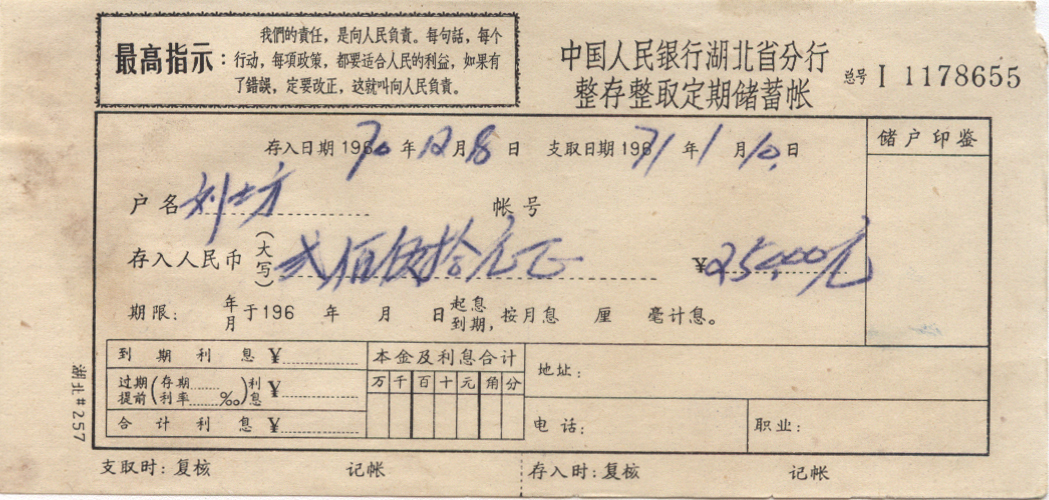 最高指示：
我們的責任，是向人民負責。每句話，每个
行动，每項政策，都要适合人民的利益，如果有
了錯誤，定要改正，这就叫向人民負責。
中国人民银行湖北省分行
整存整取定期储蓄帐
总号 I 1178655
存入日期 196 70 年 12 月 8 日 支取日期 196 71 年 1 月 10 日
储户印鉴
户名 刘士方 帐号
存入人民币（大写）贰佰伍拾元正 ¥250.00元
期限： 年月 于196 年 月 日 起息到期，按月息 厘 毫计息。
到期利息 ¥
本金及利息合计
万 千 百 十 元 角 分
地址：
过期提前（存期 利率 ‰）利息 ¥
合计利息 ¥
电话：
职业：
湖北#257
支取时：复核 记帐 存入时：复核 记帐